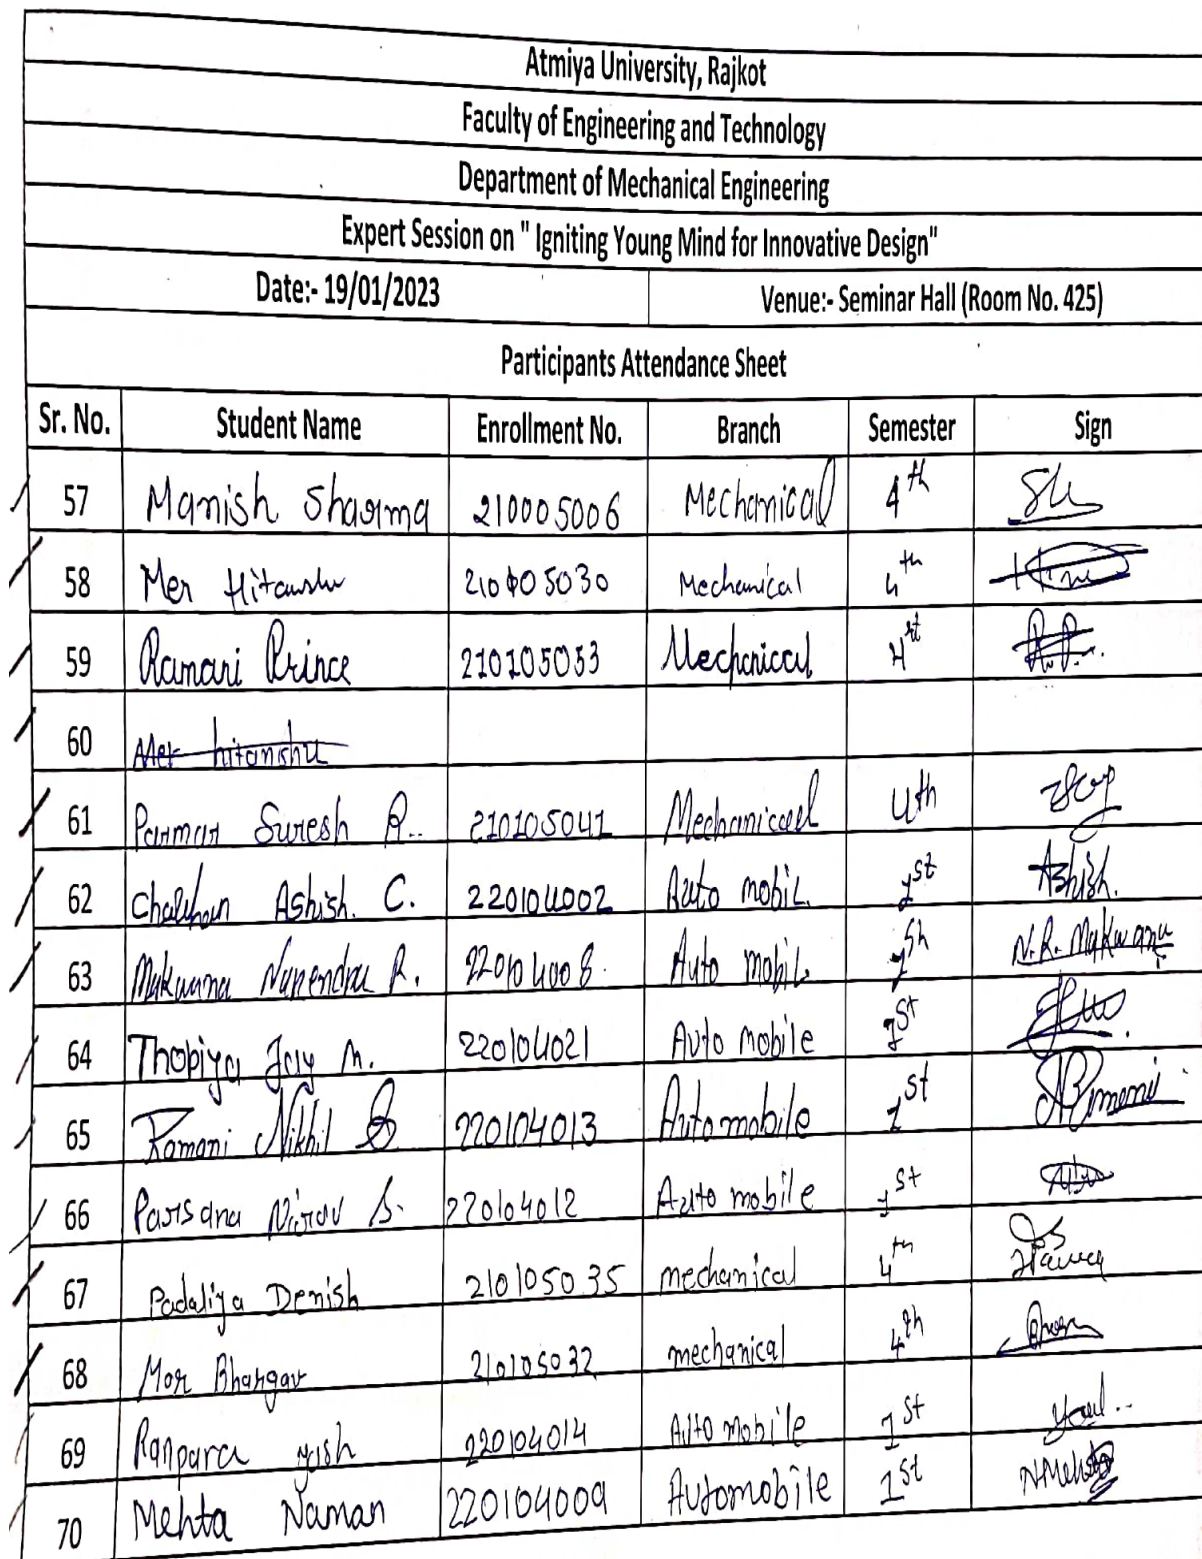 Atmiya University, Rajkot
Faculty of Engineering and Technology
Department of Mechanical Engineering
Expert Session on " Igniting Young Mind for Innovative Design"
Date:- 19/01/2023 Venue:- Seminar Hall (Room No. 425)
Participants Attendance Sheet
Sr. No. Student Name Enrollment No. Branch Semester Sign
57 Manish Sharma 210005006 Mechanical 4th
58 Mer Hitanshu 210405030 Mechanical 4th
59 Ramani Prince 210105053 Mechanical 4rt
60 Mer hitanshu
61 Parmar Suresh R.. 210105041 Mechanical 4th
62 Chauhan Ashish. C. 220104002 Auto mobil. 1st Ashish.
63 Makwana Narendra R. 220104008. Auto mobil. 1sh N.R. Makwana
64 Thobiya Jay M. 220104021 Auto mobile 1st
65 Ramani Nikhil 220104013 Automobile 1st
66 Parsana Nirav S. 220104012 Auto mobile 1st
67 Padaliya Denish 210105035 mechanical 4th
68 Mor Bhargav 210105032 mechanical 4th
69 Ranpara yash 220104014 Auto mobile 1st
70 Mehta Naman 220104009 Automobile 1st NMehta